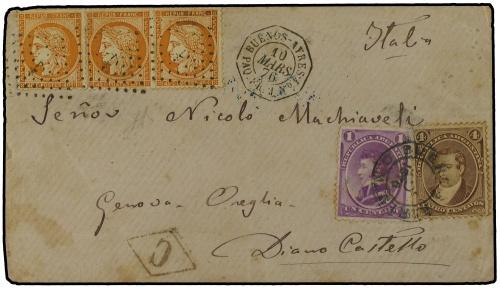 REPUB. FRANC. REPUB. FRANC. REPUB. FRANC.
BUENOS-AYRES
10
MARS
76
Italia
Señor Nicolò Machiaveli
1 1
REPUBLICA ARGENTINA
UN CENTAVO
4 4
Genova - Oneglia -
Diano Castello